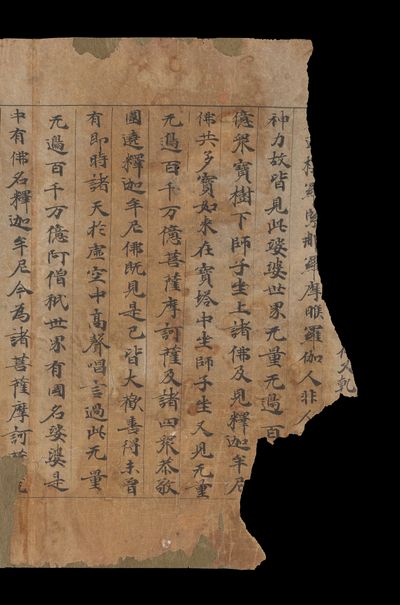 乹
羅緊那羅摩睺羅伽人非人
神力故皆見此娑婆世界无量无邊百
億衆寶樹下師子坐上諸佛及見釋迦牟尼
佛共多寶如来在寶塔中坐師子坐又見无量
无邊百千万億菩薩摩訶薩及諸四衆恭敬
圍遶釋迦牟尼佛既見是已皆大歡喜得未曽
有即時諸天於虚空中高聲唱言過此无量
无邊百千万億阿僧祇世界有國名娑婆是
中有佛名釋迦牟尼今為諸菩薩摩訶